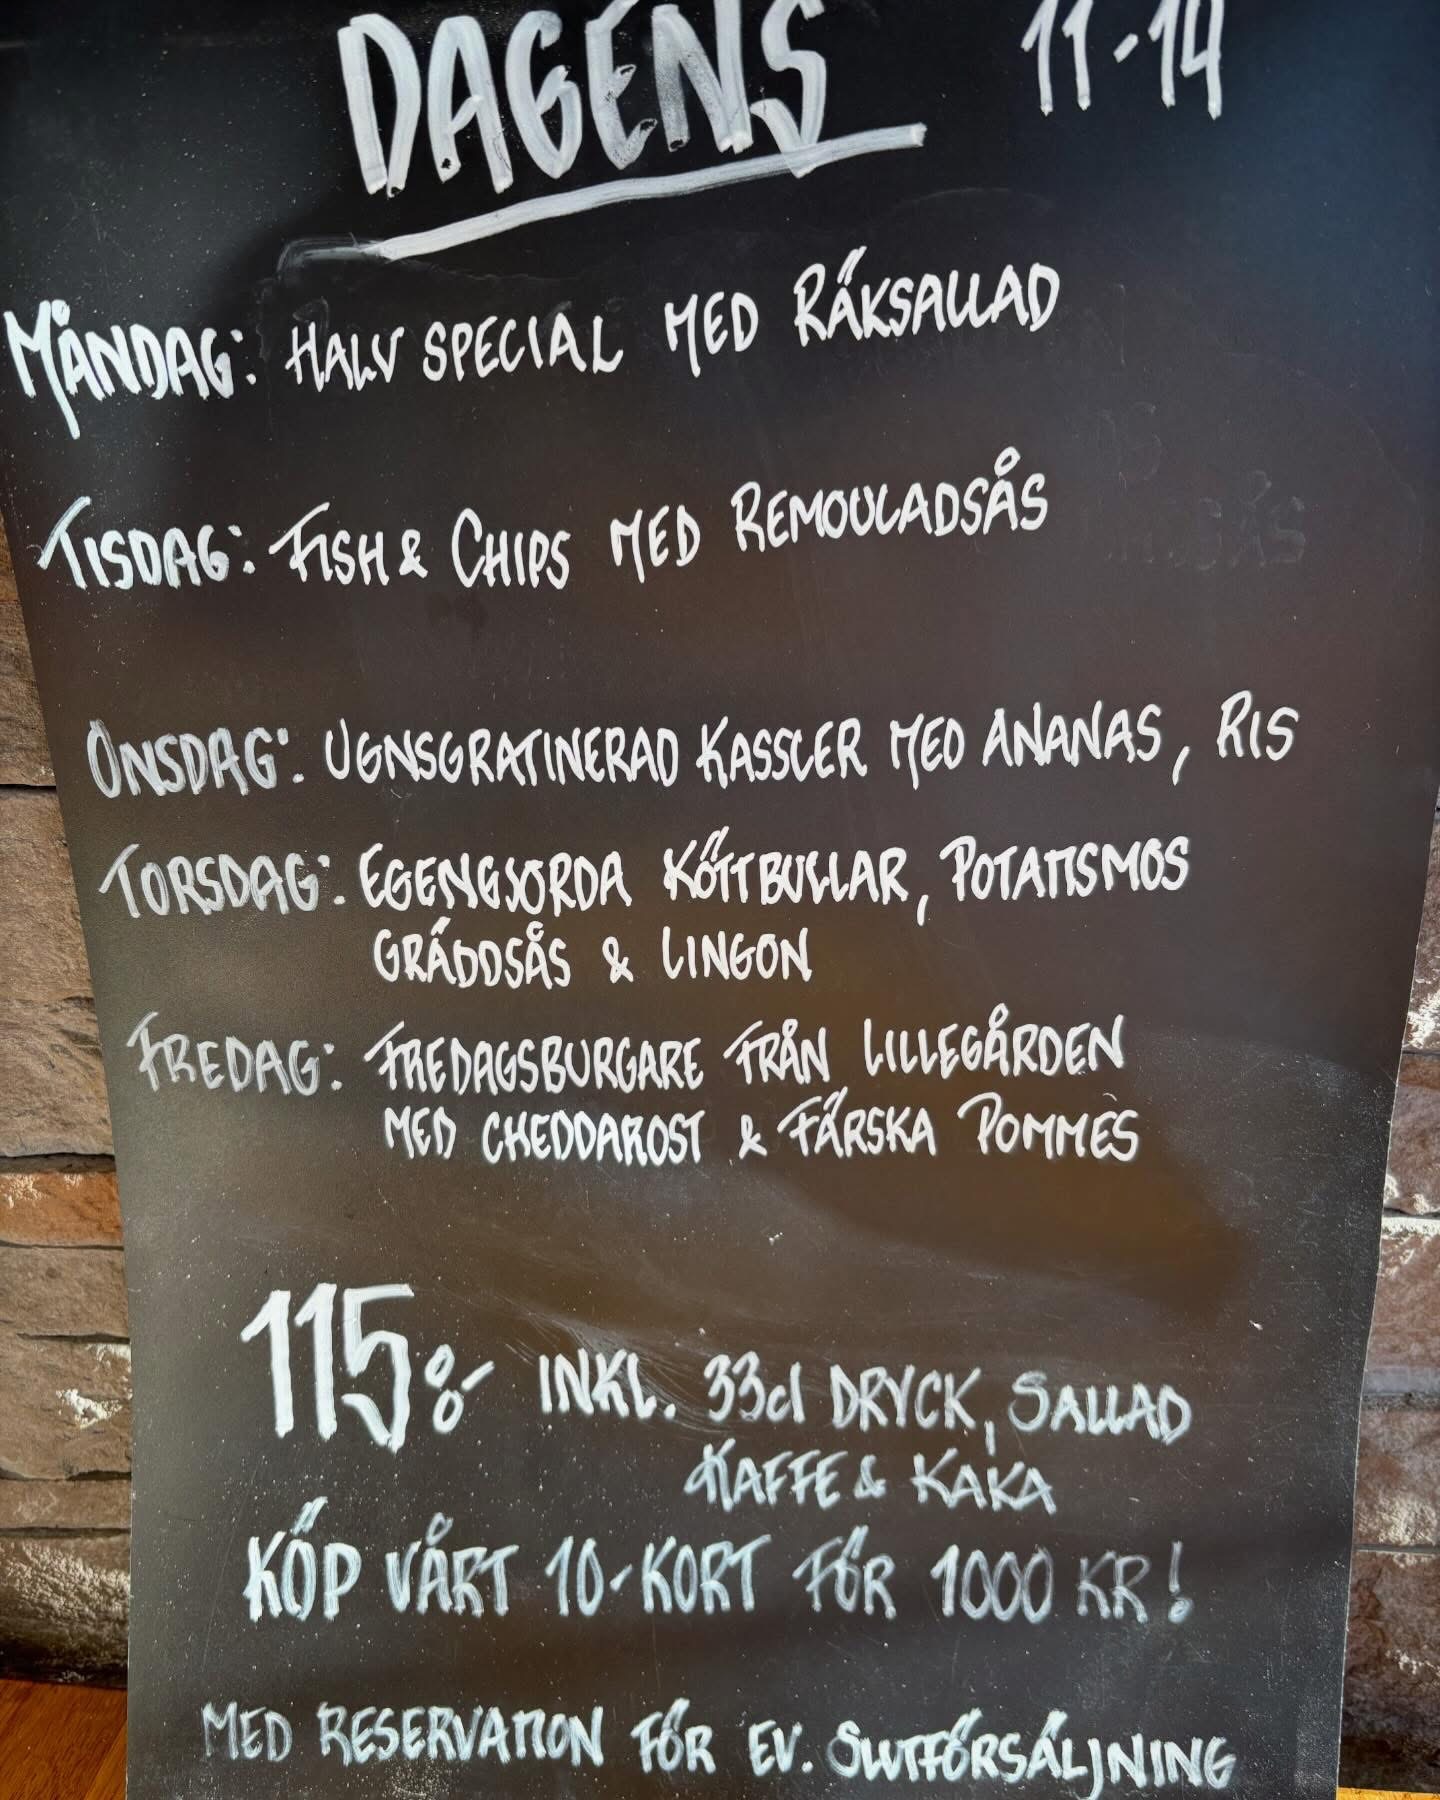 DAGENS 11-14
MÅNDAG: HALV SPECIAL MED RÄKSALLAD
TISDAG: FISH & CHIPS MED REMOULADSÅS
ONSDAG: UGNSGRATINERAD KASSLER MED ANANAS, RIS
TORSDAG: EGENGJORDA KÖTTBULLAR, POTATISMOS
GRÄDDSÅS & LINGON
FREDAG: FREDAGSBURGARE FRÅN LILLEGÅRDEN
MED CHEDDAROST & FÄRSKA POMMES
115:- INKL. 33cl DRYCK, SALLAD
KAFFE & KAKA
KÖP VÅRT 10-KORT FÖR 1000 KR!
MED RESERVATION FÖR EV. SLUTFÖRSÄLJNING